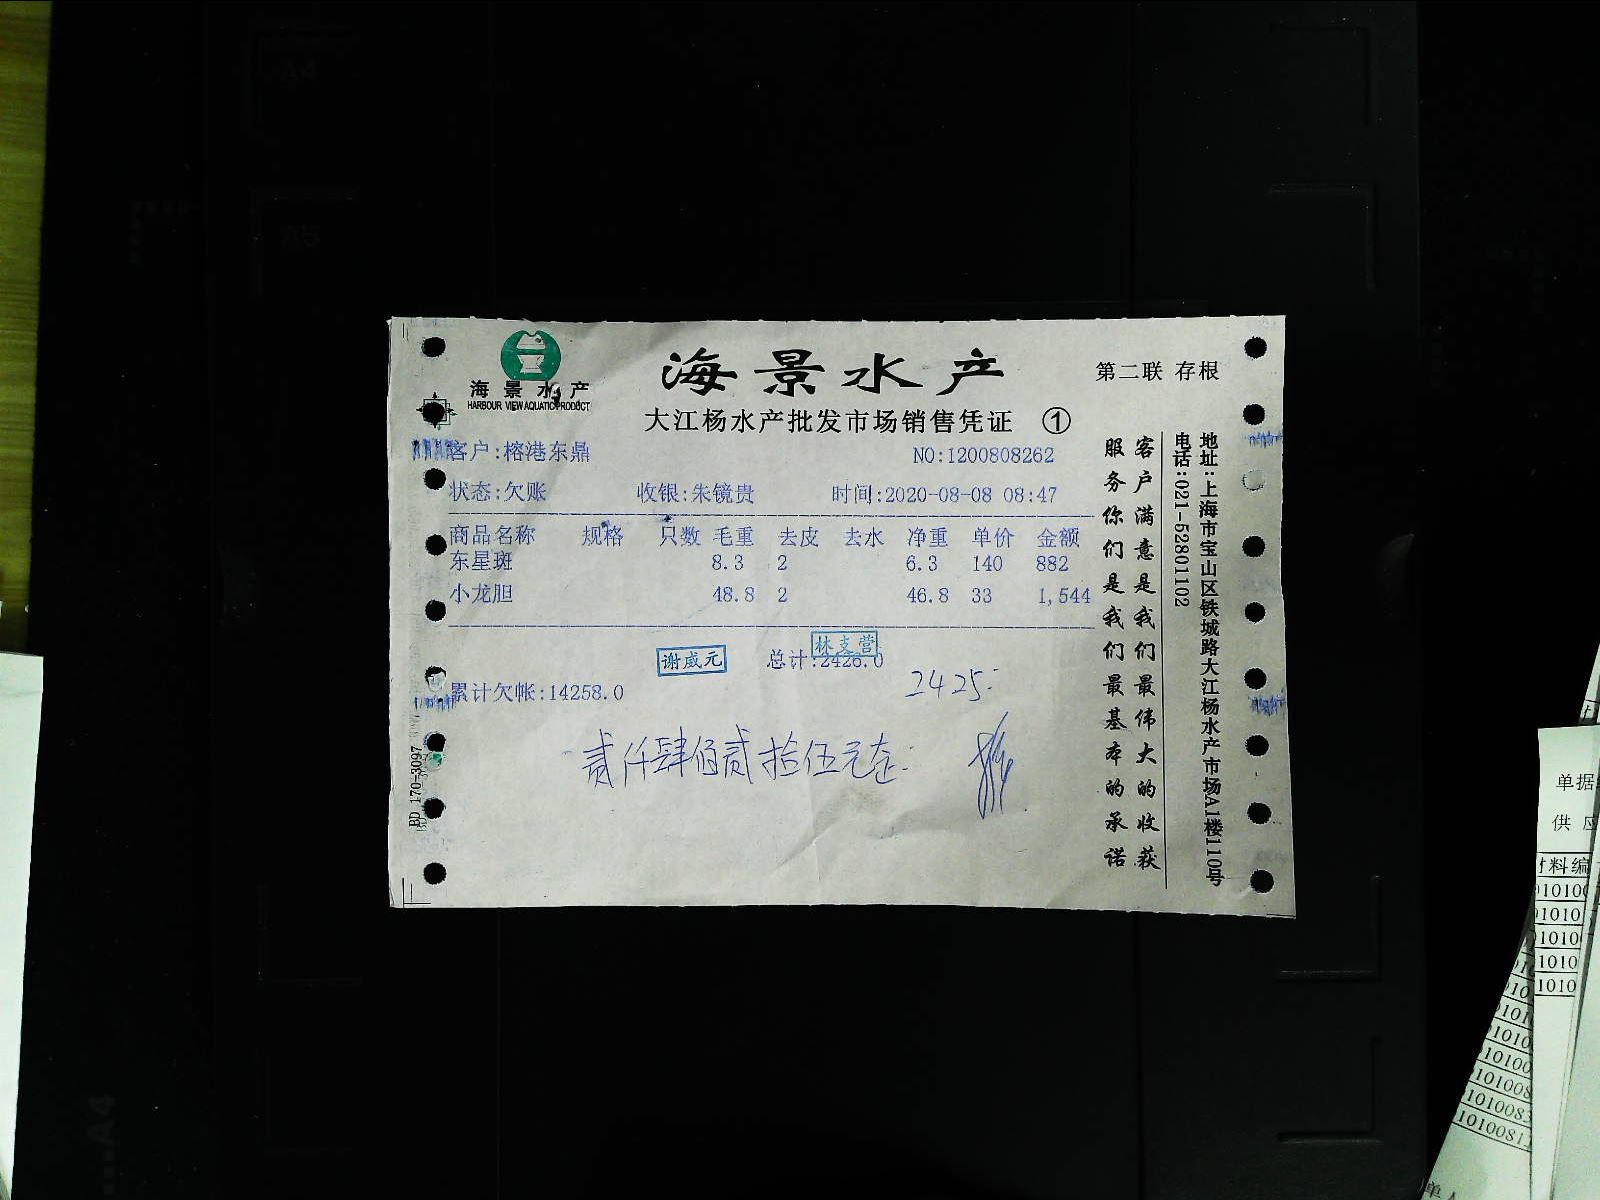 海景水产
HARBOUR VIEW AQUATIC PRODUCT
海景水产
第二联 存根
大江杨水产批发市场销售凭证 ①
客户:榕港东鼎 NO:1200808262
状态:欠账 收银:朱镜贵 时间:2020-08-08 08:47
商品名称 规格 只数 毛重 去皮 去水 净重 单价 金额
东星斑 8.3 2 6.3 140 882
小龙胆 48.8 2 46.8 33 1,544
林支营
谢威元 总计:2426.0
2425.-
累计欠帐:14258.0
贰仟肆佰贰拾伍元正.
客户满意是我们最伟大的收获
服务你们是我们最基本的承诺
地址:上海市宝山区铁城路大江杨水产市场A1楼110号
电话:021-52801102
BD 170-3097
单据
供
材料编